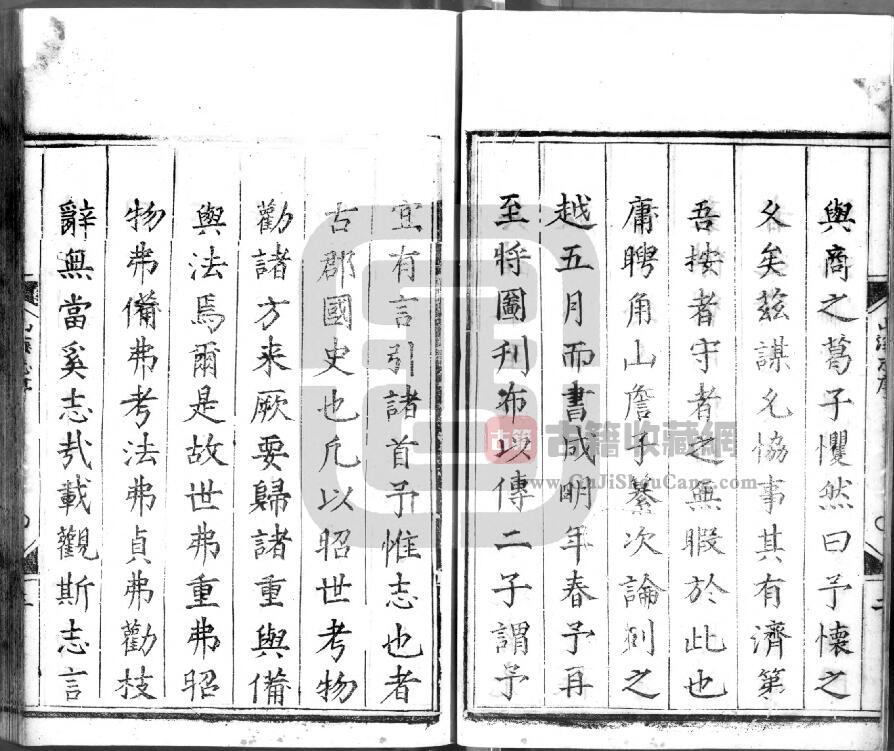 與商之葛子懼然曰予懷之
久矣茲謀允協事其有濟第
吾按者守者之無暇於此也
庸聘角山詹子纂次論刻之
越五月而書成明年春予再
至將圖刊布以傳二子謂予
宜有言引諸首予惟志也者
古郡國史也凡以昭世考物
勸諸方来厥要歸諸重與備
與法焉爾是故世弗重弗昭
物弗備弗考法弗貞弗勸枝
辭無當奚志㢤載觀斯志言
古籍
古籍收藏網
www.GuJiShouCang.com
二